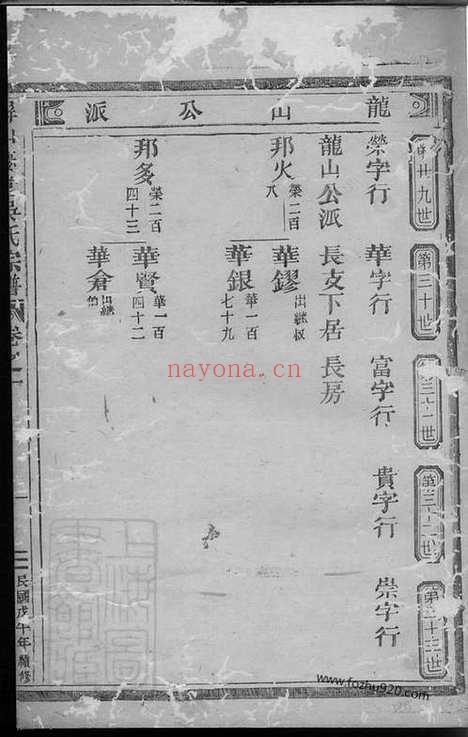 龍山公派
廿九世
第三十世
三十一世
第三十二世
第三十三世
榮字行
華字行
富字行
貴字行
崇字行
龍山公派 長支下居 長房
邦火 榮二百八
華鏐 出繼叔
華銀 華一百七十九
邦多 榮二百四十三
華賢 華一百四十二
華倉 出繼伯
氏宗譜
民國戊午年續修
nayona.cn
www.fozhu920.com